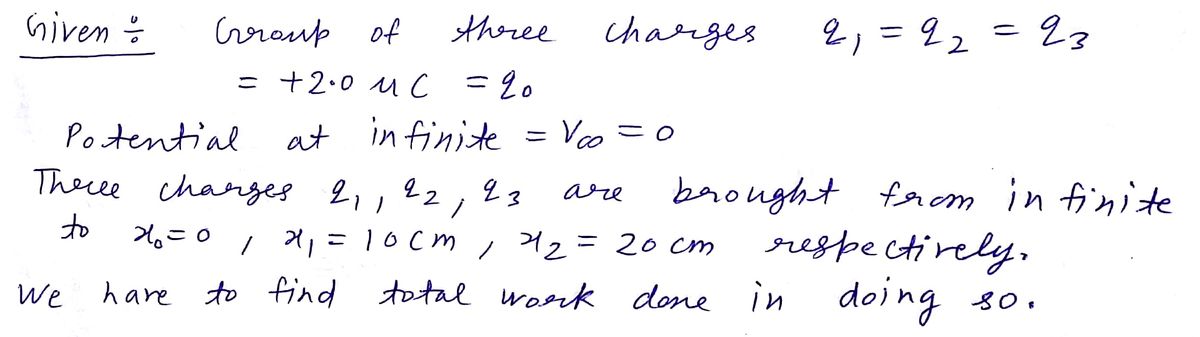 Given ÷ Group of three charges q₁ = q₂ = q₃
= +2.0 μC = q₀
Potential at infinite = V∞ = 0
Three charges q₁, q₂, q₃ are brought from infinite
to x₀ = 0, x₁ = 10 cm, x₂ = 20 cm respectively.
We have to find total work done in doing so.